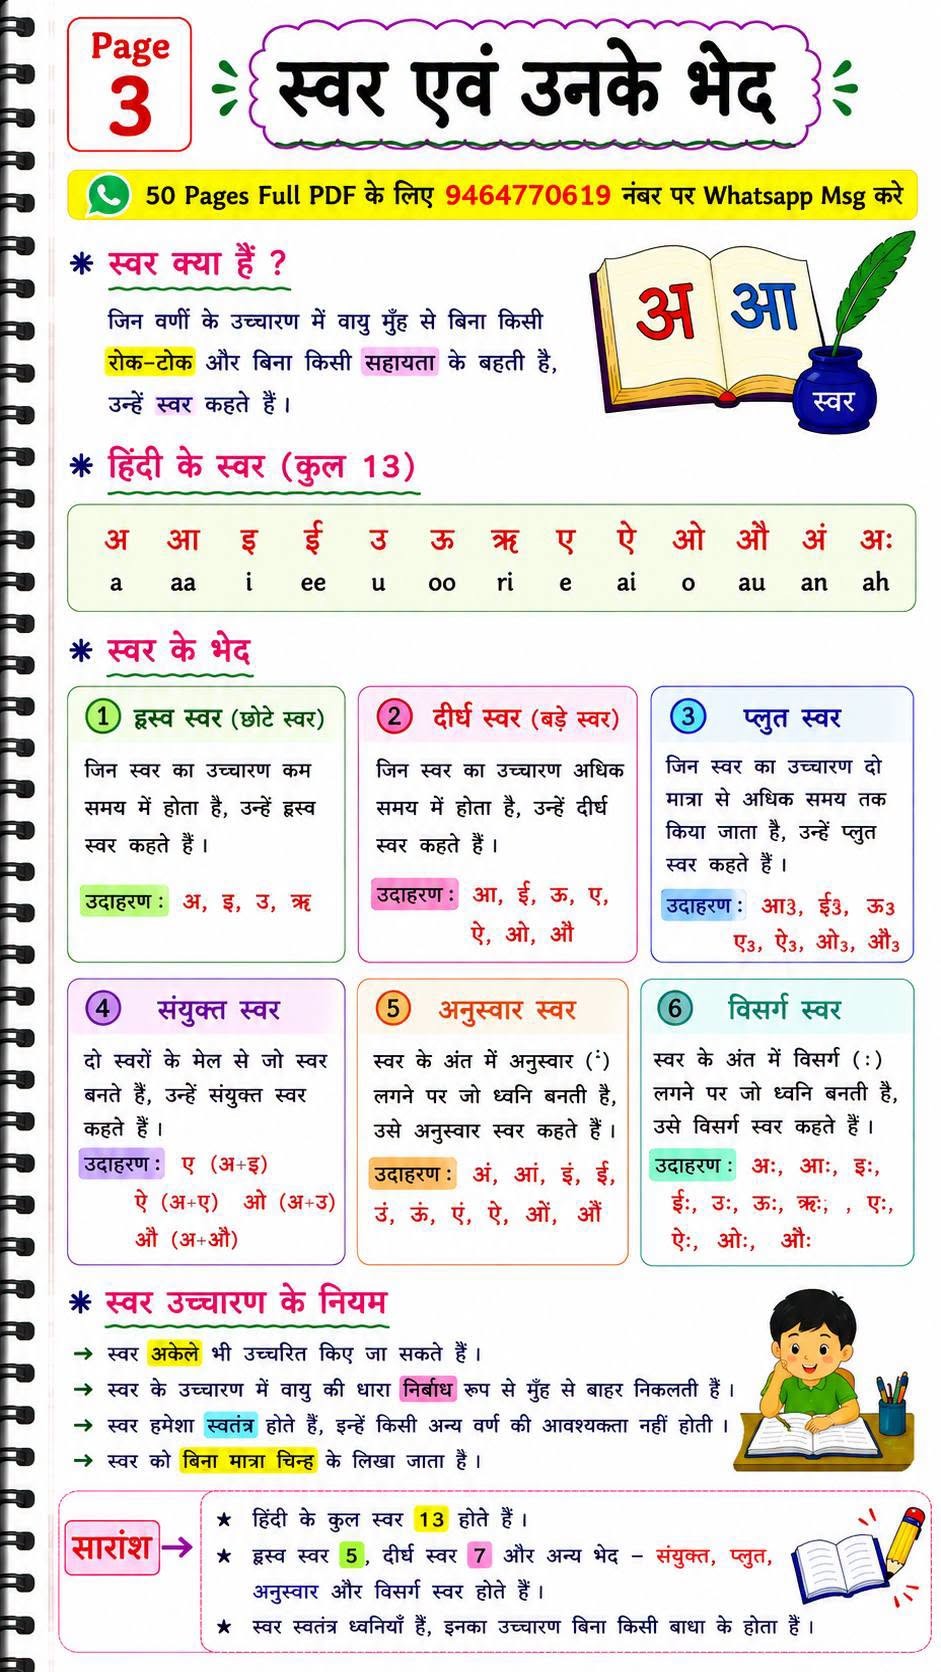 Page
3
स्वर एवं उनके भेद
50 Pages Full PDF के लिए 9464770619 नंबर पर Whatsapp Msg करे
स्वर क्या हैं ?
जिन वर्णी के उच्चारण में वायु मुँह से बिना किसी
रोक-टोक और बिना किसी सहायता के बहती है,
उन्हें स्वर कहते हैं।
अ आ
स्वर
हिंदी के स्वर (कुल 13)
अ आ इ ई उ ऊ ऋ ए ऐ ओ औ अं अः
a aa i ee u oo ri e ai o au an ah
स्वर के भेद
1 ह्रस्व स्वर (छोटे स्वर)
जिन स्वर का उच्चारण कम
समय में होता है, उन्हें ह्रस्व
स्वर कहते हैं।
उदाहरण : अ, इ, उ, ऋ
2 दीर्घ स्वर (बड़े स्वर)
जिन स्वर का उच्चारण अधिक
समय में होता है, उन्हें दीर्घ
स्वर कहते हैं।
उदाहरण : आ, ई, ऊ, ए,
ऐ, ओ, औ
3 प्लुत स्वर
जिन स्वर का उच्चारण दो
मात्रा से अधिक समय तक
किया जाता है, उन्हें प्लुत
स्वर कहते हैं।
उदाहरण : आ3, ई3, ऊ3
ए3, ऐ3, ओ3, औ3
4 संयुक्त स्वर
दो स्वरों के मेल से जो स्वर
बनते हैं, उन्हें संयुक्त स्वर
कहते हैं।
उदाहरण : ए (अ+इ)
ऐ (अ+ए) ओ (अ+उ)
औ (अ+औ)
5 अनुस्वार स्वर
स्वर के अंत में अनुस्वार (ं)
लगने पर जो ध्वनि बनती है,
उसे अनुस्वार स्वर कहते हैं।
उदाहरण : अं, आं, इं, ईं,
उं, ऊं, एं, ऐं, ओं, औं
6 विसर्ग स्वर
स्वर के अंत में विसर्ग (:)
लगने पर जो ध्वनि बनती है,
उसे विसर्ग स्वर कहते हैं।
उदाहरण : अः, आः, इः,
ईः, उः, ऊः, ऋः, , एः,
ऐः, ओः, औः
स्वर उच्चारण के नियम
→ स्वर अकेले भी उच्चरित किए जा सकते हैं।
→ स्वर के उच्चारण में वायु की धारा निर्बाध रूप से मुँह से बाहर निकलती हैं।
→ स्वर हमेशा स्वतंत्र होते हैं, इन्हें किसी अन्य वर्ण की आवश्यकता नहीं होती।
→ स्वर को बिना मात्रा चिन्ह के लिखा जाता है।
सारांश →
★ हिंदी के कुल स्वर 13 होते हैं।
★ ह्रस्व स्वर 5, दीर्घ स्वर 7 और अन्य भेद – संयुक्त, प्लुत,
अनुस्वार और विसर्ग स्वर होते हैं।
★ स्वर स्वतंत्र ध्वनियाँ हैं, इनका उच्चारण बिना किसी बाधा के होता हैं।